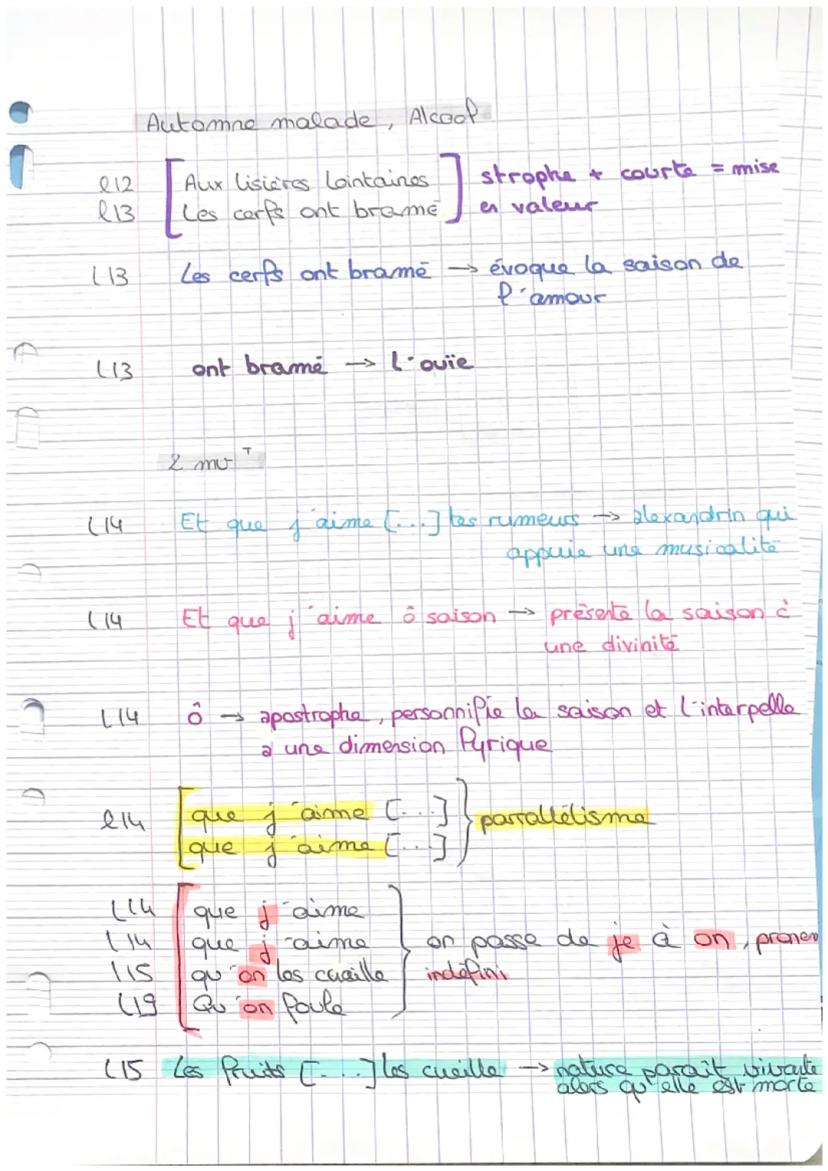 Automne malade, Alcool
l12 Aux lisières lointaines strophe + courte = mise
l13 Les cerfs ont bramé en valeur
l13 Les cerfs ont bramé → évoque la saison de
l'amour
l13 ont bramé → l'ouïe
2 mvT
l14 Et que j'aime [...] les rumeurs → alexandrin qui
appuie une musicalité
l14 Et que j'aime ô saison → présente la saison à
une divinité
l14 ô → apostrophe, personnifie la saison et l'interpelle
a une dimension lyrique
l14 que j'aime [...] parrallélisme
que j'aime [...]
l14 que j'aime
l14 que j'aime on passe de je à on, pronom
l15 qu'on les cueille indéfini
l19 Qu'on foule
l15 Les fruits [...] les cueille → nature parait vivante
alors qu'elle est morte